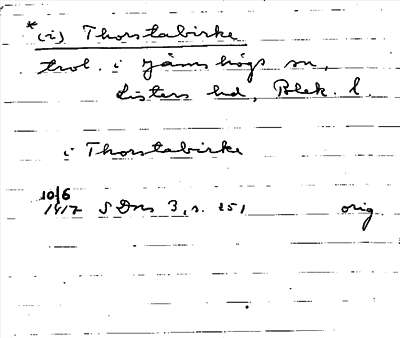 *(i) Thorstabirke
trol. i Jämshögs sn,
Listers hd, Blek. l.
i Thorstabirke
10/6
1417 SDns 3, s. 251 orig